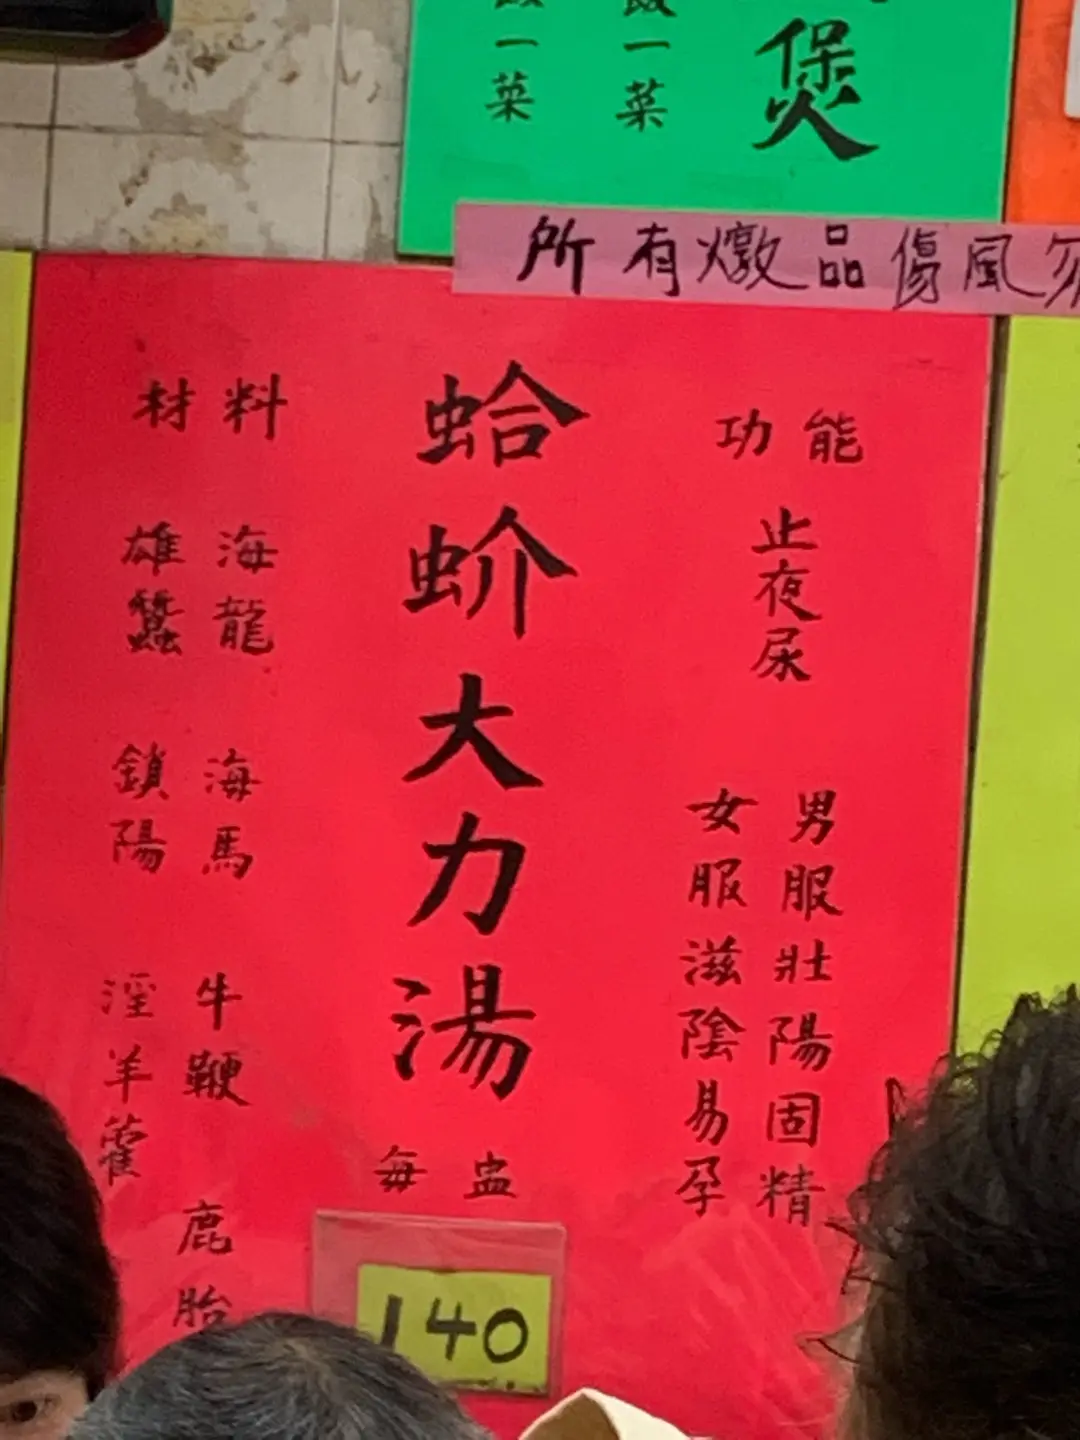 煲
飯一菜
飯一菜
所有燉品傷風勿
功能
止夜尿
男服壯陽固精
女服滋陰易孕
蛤蚧大力湯
每盅
140
材料
海龍 海馬 牛鞭 鹿胎
雄蠶 鎖陽 淫羊藿